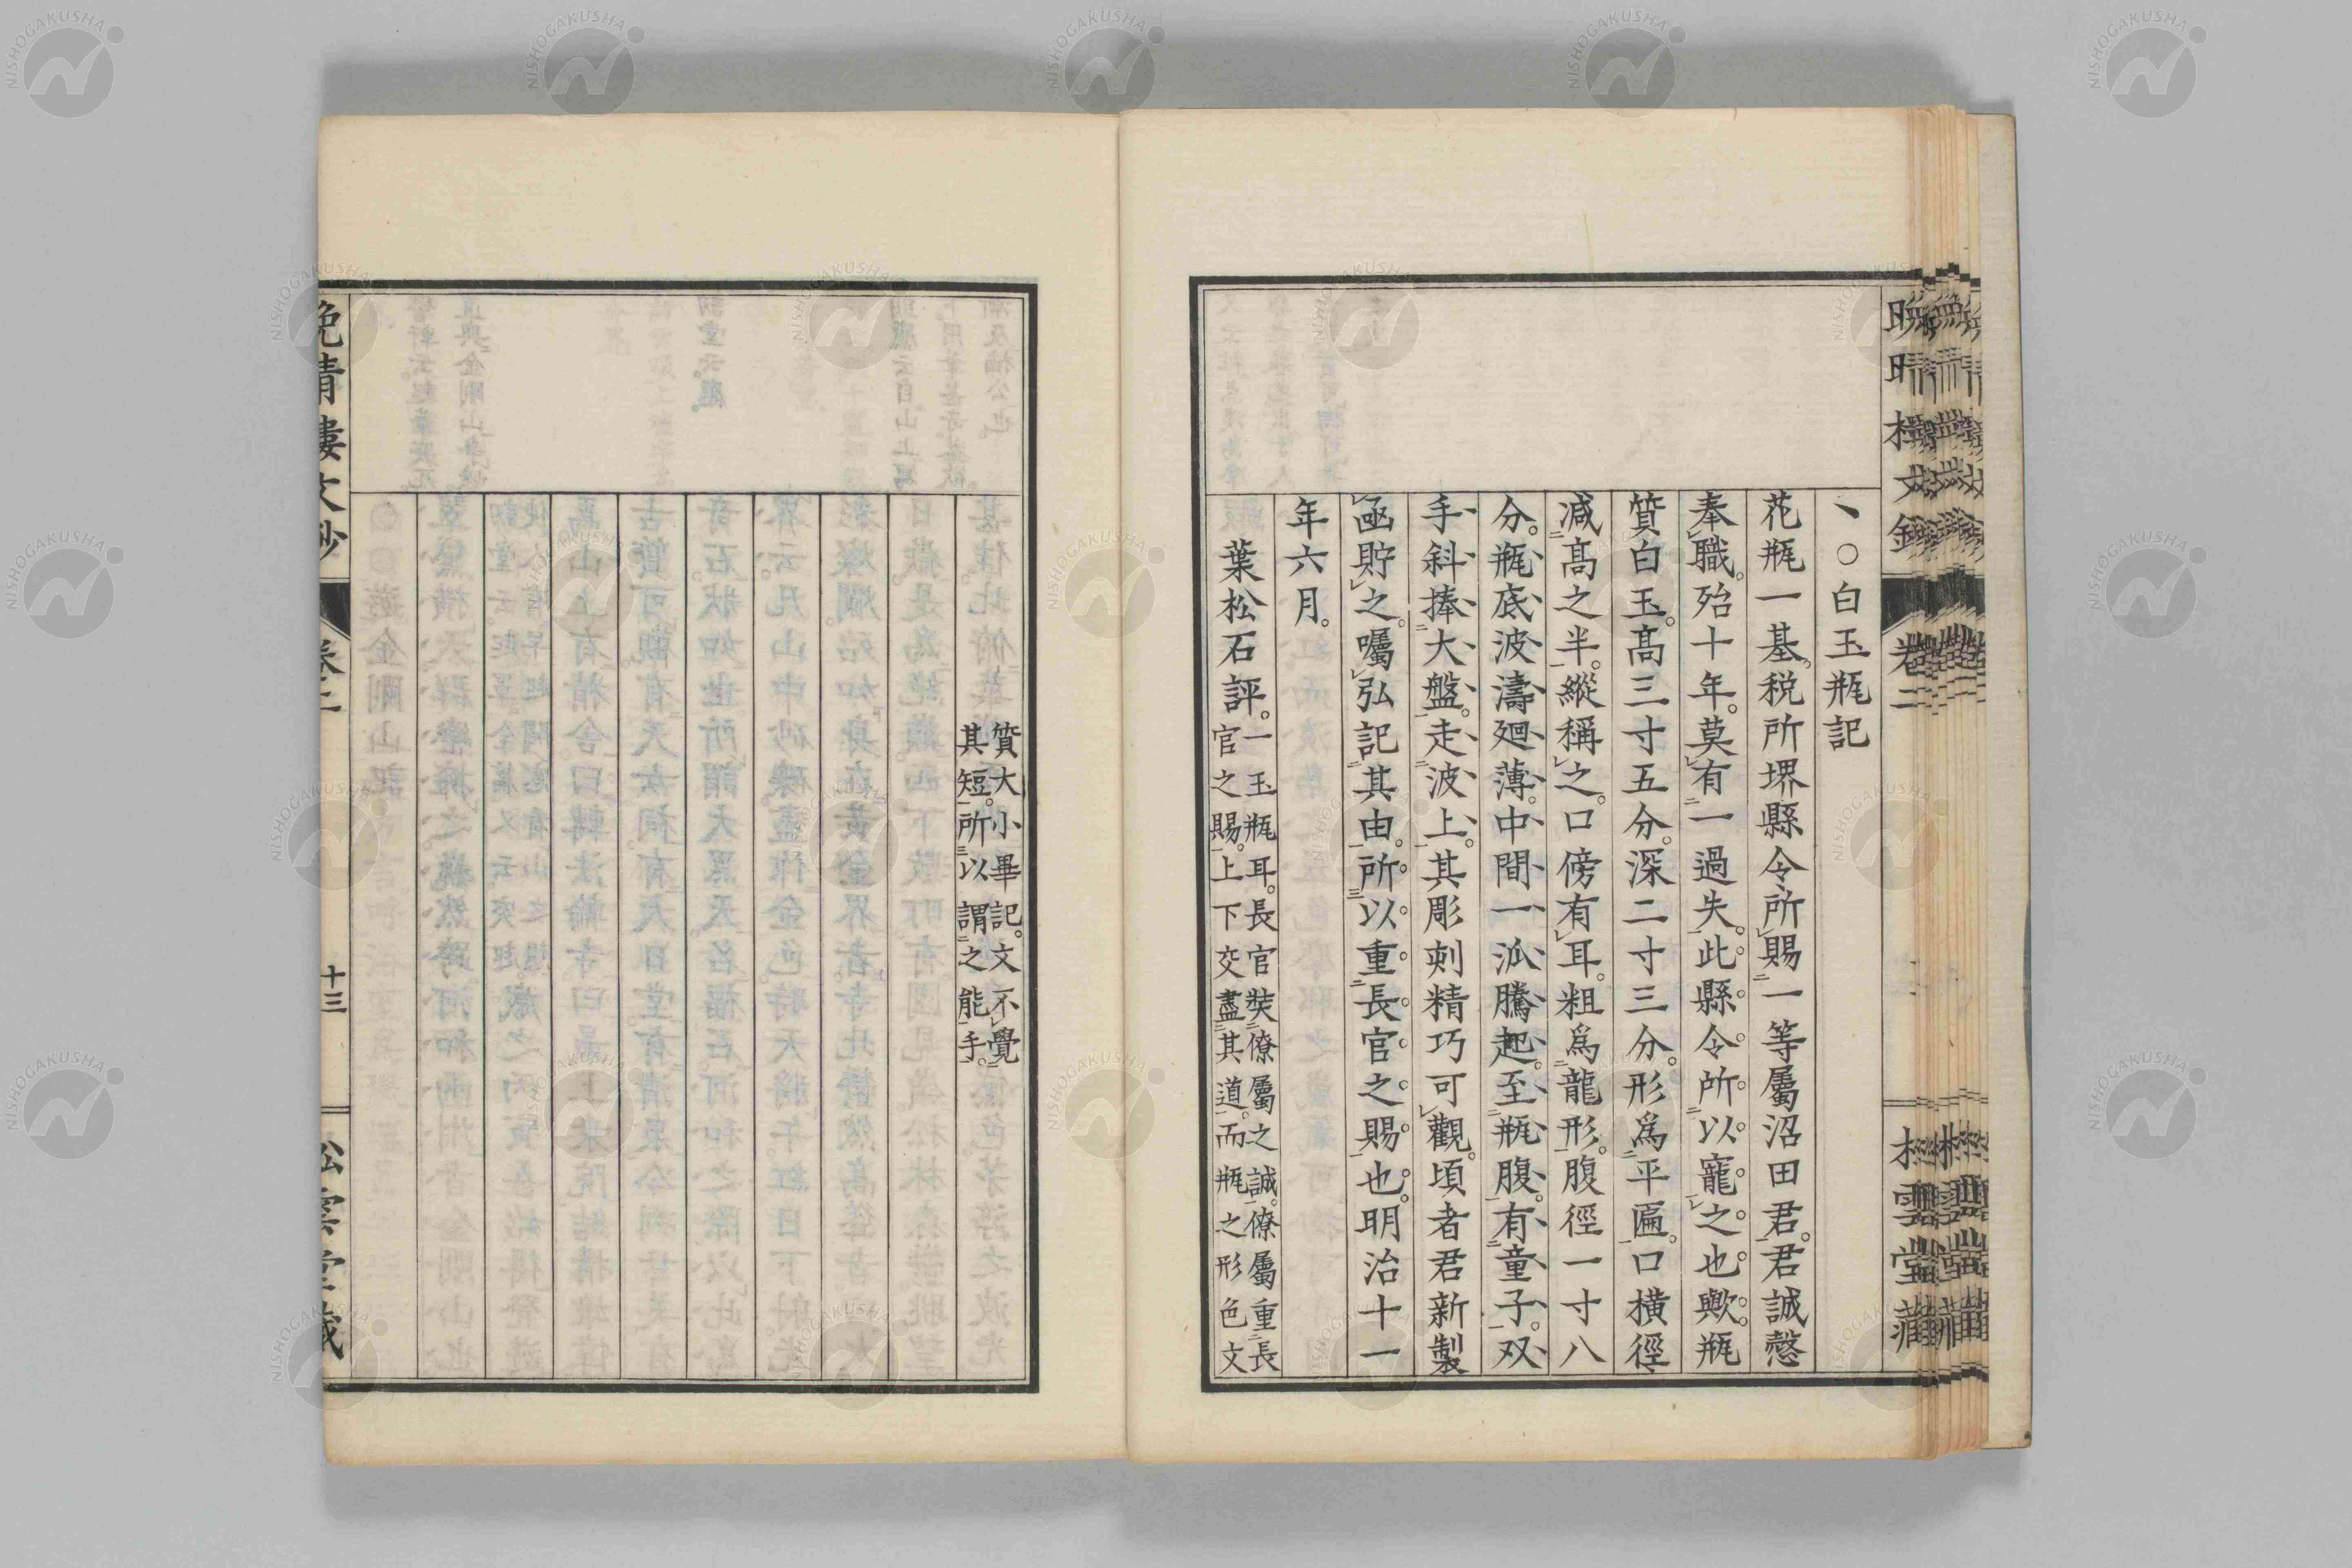 、○白玉瓶記
花瓶一基。税所堺縣令所賜一等屬沼田君。君誠愨
奉職。殆十年。莫有一過失。此縣令所以寵之也歟。瓶
質白玉。高三寸五分。深二寸三分。形爲平匾。口橫徑
減高之半。縱稱之。口傍有耳。粗爲龍形。腹徑一寸八
分。瓶底波濤廻薄。中間一派騰起。至瓶腹。有童子。双
手斜捧大盤。走波上。其彫刻精巧可觀。頃者君新製
凾貯之。囑弘記其由。所以重長官之賜也。明治十一
年六月。
葉松石評。一玉瓶耳。長官奘僚屬之誠。僚屬重長
官之賜。上下交盡其道。而瓶之形色文
質大小畢記。文不覺
其短。所以謂之能手。
晩晴樓文鈔
卷二
十三
松雲堂藏
NISHOGAKUSHA